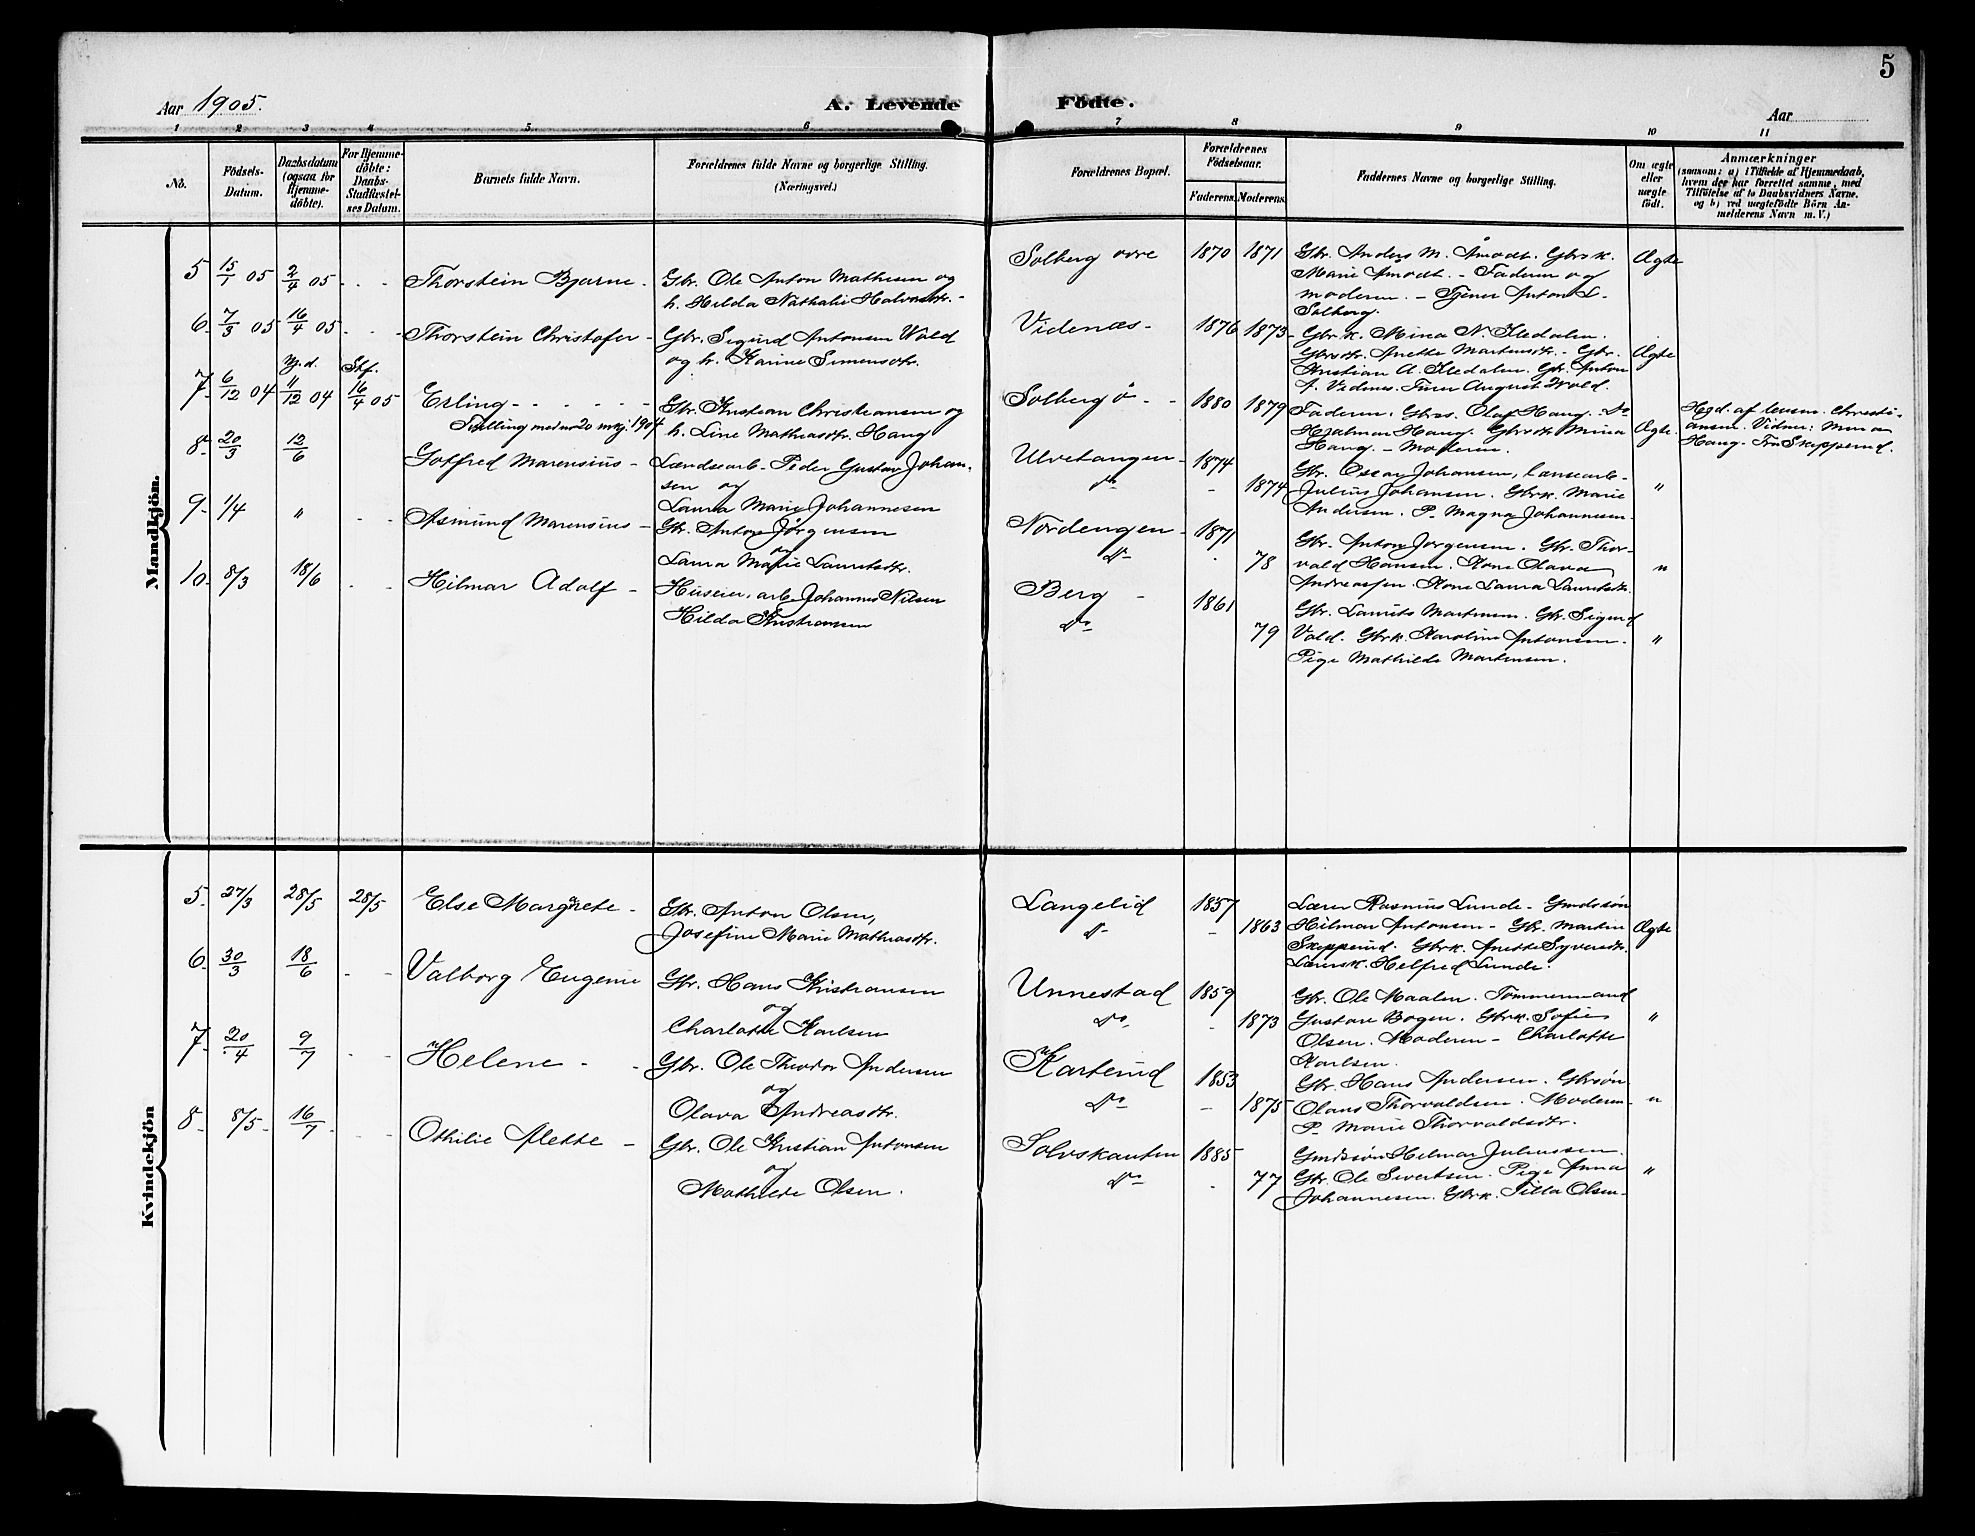 5
Aar 1905.
A. Levende Födte.
Aar
1 2 3 4 5 6 7 8 9 10 11
No.
Födsels-
Datum.
Daabsdatum
(ogsaa for
Hjemme-
döbte).
For Hjemme-
döbte:
Daabs-
Stadfæstel-
ses Datum.
Barnets fulde Navn.
Forældrenes fulde Navne og borgerlige Stilling.
(Næringsvei.)
Forældrenes Bopæl.
Forældrenes
Födselsaar.
Faderens. Moderens.
Faddernes Navne og borgerlige Stilling.
Om ægte
eller
uægte
født.
Anmærkninger
(saasom: a) i Tilfælde af Hjemmedaab,
hvem der har forrettet samme, med
Tilföielse af to Daabsvidners Navne,
og b) ved uægtefödte Börn An-
melderens Navn m. V.)
Mandkjön.
5 15/1 05 2/4 05 - - - Thorstein Bjarne -
Gbr. Ole Anton Mathisen og
h. Hilda Nathalie Halvorsdtr. -
Solberg øvre 1870 1871
Gbr. Anders M. Åmodt. Gbrsk.
Marie Amodt. - Faderen og
moderen. - Tjener Anton L.
Solberg.
Ægte
6. 7/3 05 16/4 05 - - - Thorstein Christofer -
Gbr. Sigurd Antonsen Wold
og h. Karine Simensdtr.
Videnæs - 1876 1873
Gbrk. Mina N. Iledalen.
Gbrsdtr. Anette Martinsdtr. - Gbr.
Kristian A. Iledalen. Gbr. Anton
A. Videnes. Tjener August Wold.
Ægte
Hj.d. Stf.
7. 6/12 04 11/12 04 16/4 05 Erling - - - - -
Tvilling med no 20 mkj. 1904
Gbr. Kristian Christiansen og
h. Line Mathiasdtr. Haug
Solberg ö - - 1880 1879
Faderen. Gbrs. Olaf Haug. Do
Hjalmar Haug. Gbrsdtr. Mina
Haug. - Moderen.
Ægte.
Hjd. af lensm. Christi-
ansen. Vidner: Mina
Haug. Fru Skipperud.
8. 20/3 12/6 Gotfred Marensius -
Landsarb. Peder Gustav Johan-
sen og
Laura Marie Johannesen
Ulvetangen - 1874
Do - 1874
Gbr. Oscar Johansen, landsarb.
Julius Johansen. Gbrk. Marie
Andersen. P. Magna Johannesen.
"
9. 1/4 " - - Asmund Marensius -
Gbr. Anton Jörgensen
og
Laura Marie Lauritsdtr.
Nordengen - 1871
Do - 78
Gbr. Anton Jorgensen. Gbr. Thor-
vald Hansen. Kone Olava
Andreassen. Kone Laura Lauritsdtr.
"
10. 8/3 18/6 - - Hilmar Adolf -
Huseier, arb. Johannes Nilsen
Hilda Kristiansen
Berg - 1861
Do 79
Gbr. Laurits Martinsen. Gbr. Sigurd
Vold. Gbrk. Karoline Antonsen.
Pige Mathilde Martinsen.
"
Kvindekjön
5. 27/3 28/5 28/5 Else Margrete -
Gbr. Anton Olsen,
Josefine Marie Mathiasdtr.
Langelid 1857
Do - 1863
Lærer Rasmus Lunde - Gaardssön
Hilmar Antonsen - Gbr. Martin
Skipperud. Gbrk. Anette Syversdtr.
Lærersk. Helfred Lunde.
Ægte
6. 30/3 18/6 - - Valborg Eugenie
Gbr. Hans Kristiansen
og
Charlotte Karlsen
Unnestad 1859
Do - 1873
Gbr. Ole Maalen. Tömmermand
Gustav Bogen. Gbrk. Sofie
Olsen. Moderen - Charlotte
Karlsen.
"
7. 20/4 9/7 - - Helene - -
Gbr. Ole Theodor Andersen
og
Olava Andreasdtr.
Karterud 1853
Do - 1875
Gbr. Hans Andersen. Gbrsön
Olaus Thorvaldsen. Moderen -
P. Marie Thorvaldsdtr.
"
8. 8/5 - 16/7 - - - Othilie Alette -
Gbr. Ole Kristian Antonsen
og
Mathilde Olsen.
Solvskauten 1885
Do - 77
Gaardssön Hilmar Juliussen.
Gbr. Ole Sivertsen. Pige Anna
Johannesen. Gbrk. Tilla Olsen -
"